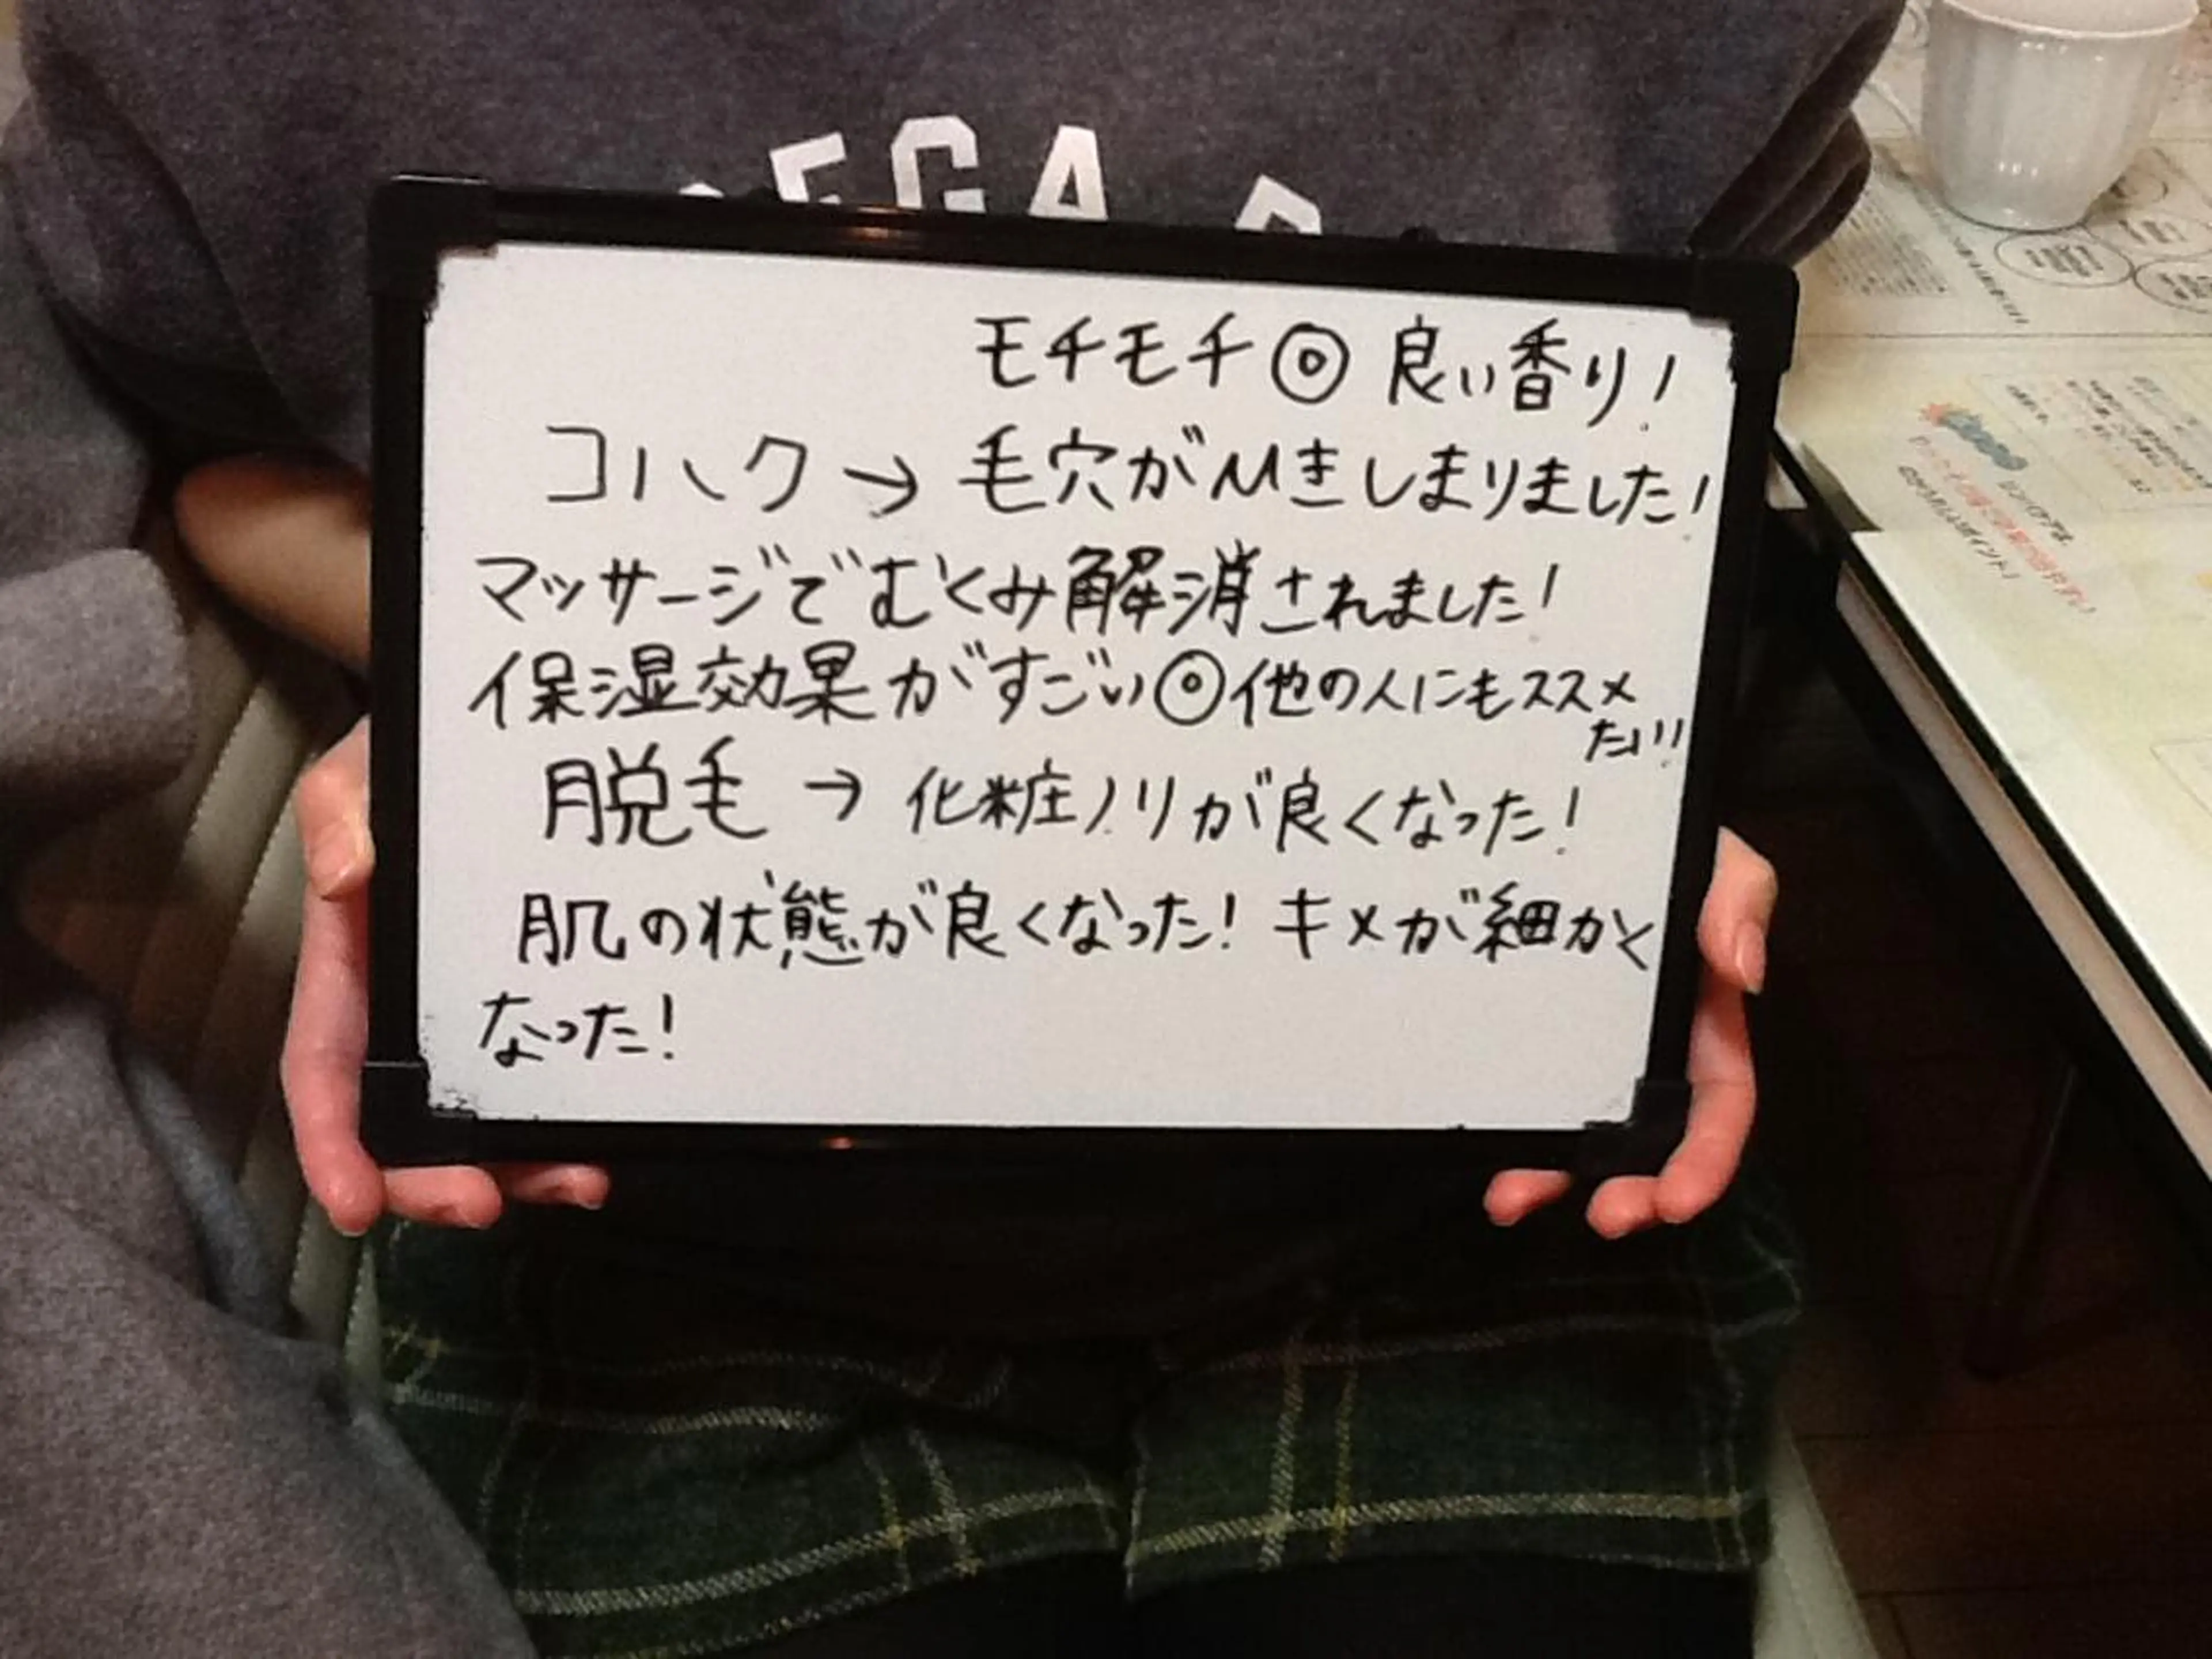 EGA
モチモチ◎ 良い香り!
コハク→毛穴がひきしまりました!
マッサージでむくみ解消されました!
保湿効果がすごい◎他の人にもススメ
たい!!
脱毛→化粧ノリが良くなった!
肌の状態が良くなった! キメが細かく
なった!